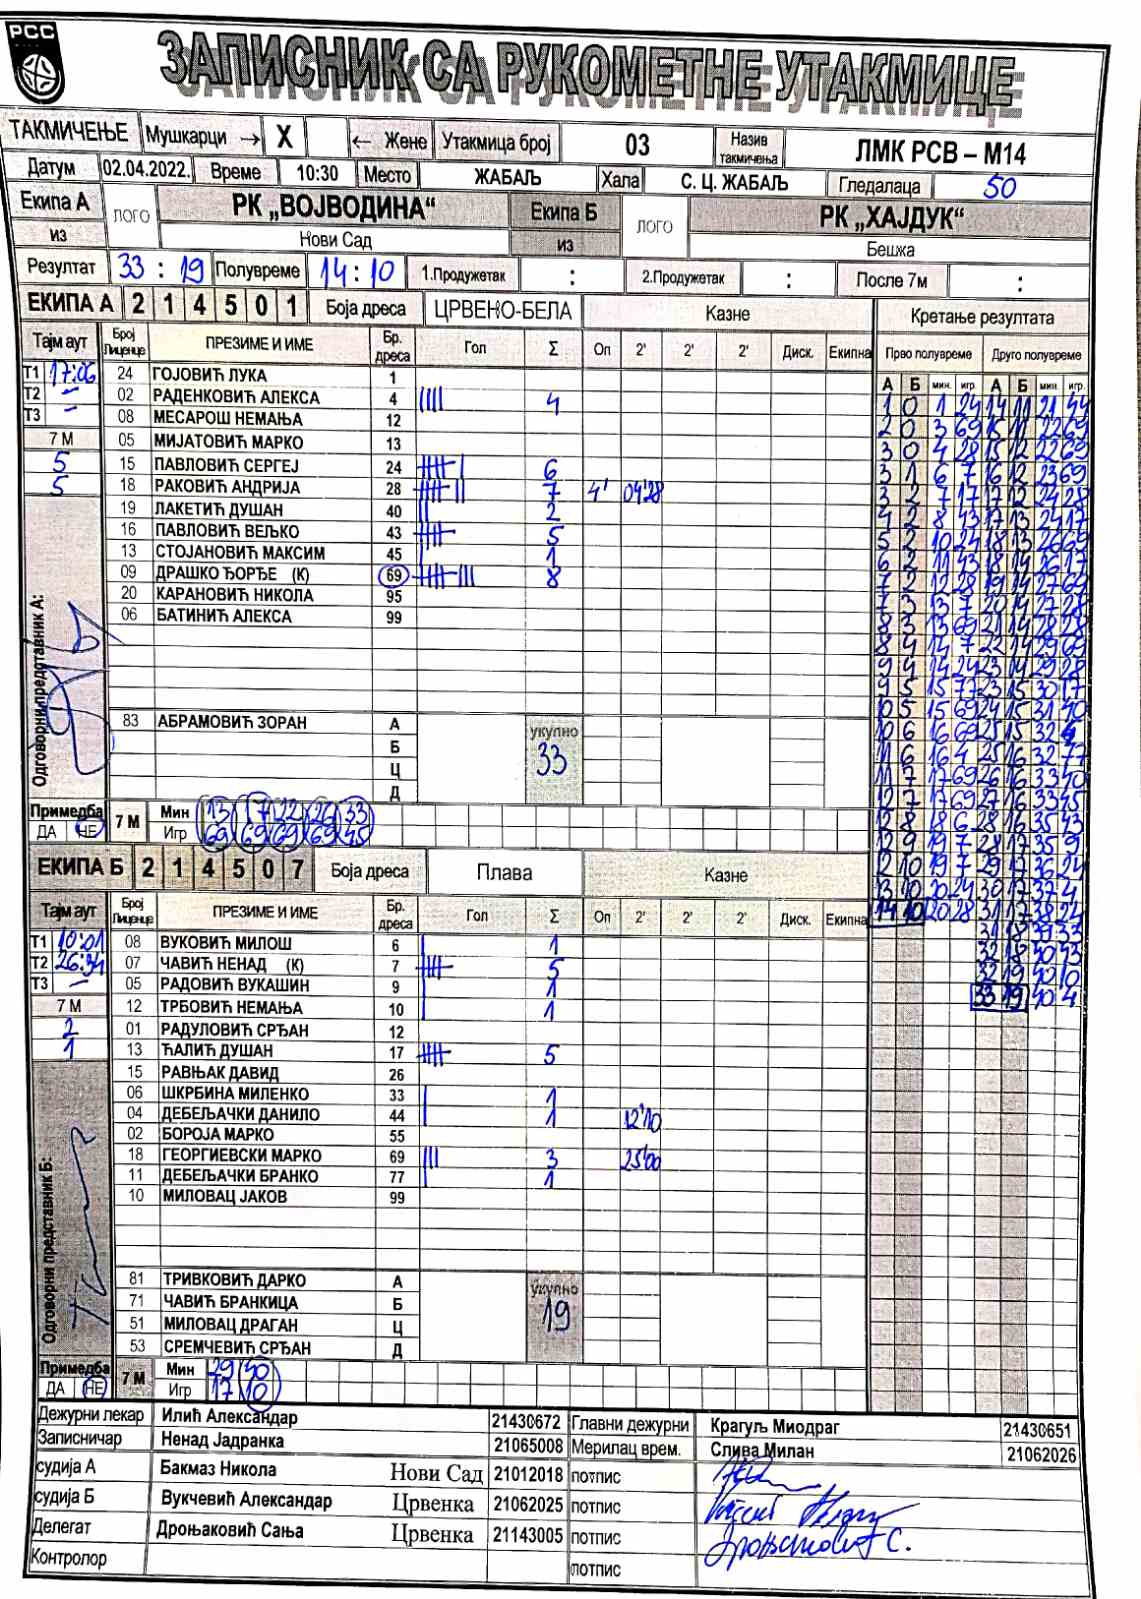 РСС
ЗАПИСНИК СА РУКОМЕТНЕ УТАКМИЦЕ
ТАКМИЧЕЊЕ Мушкарци → X ← Жене Утакмица број 03 Назив такмичења ЛМК РСВ – М14
Датум 02.04.2022. Време 10:30 Место ЖАБАЉ Хала С. Ц. ЖАБАЉ Гледалаца 50
Екипа А ЛОГО РК „ВОЈВОДИНА“ Екипа Б ЛОГО РК „ХАЈДУК“
из Нови Сад из Бешка
Резултат 33 : 19 Полувреме 14:10 1.Продужетак : 2.Продужетак : После 7м :
ЕКИПА А 2 1 4 5 0 1 Боја дреса ЦРВЕНО-БЕЛА Казне Кретање резултата
Тајм аут Број Лиценце ПРЕЗИМЕ И ИМЕ Бр. дреса Гол Σ Оп 2' 2' 2' Диск. Екипна Прво полувреме Друго полувреме
А Б мин. игр. А Б мин. игр.
Т1 17:06 24 ГОЈОВИЋ ЛУКА 1
Т2 – 02 РАДЕНКОВИЋ АЛЕКСА 4 |||| 4
Т3 – 08 МЕСАРОШ НЕМАЊА 12
7 М 05 МИЈАТОВИЋ МАРКО 13
5 15 ПАВЛОВИЋ СЕРГЕЈ 24 6
5 18 РАКОВИЋ АНДРИЈА 28 7 4' 04'28
19 ЛАКЕТИЋ ДУШАН 40 || 2
16 ПАВЛОВИЋ ВЕЉКО 43 5
13 СТОЈАНОВИЋ МАКСИМ 45 | 1
09 ДРАШКО ЂОРЂЕ (К) 69 8
20 КАРАНОВИЋ НИКОЛА 95
06 БАТИНИЋ АЛЕКСА 99
Одговорни представник А:
83 АБРАМОВИЋ ЗОРАН А укупно
Б 33
Ц
Д
1 0 1 24 14 11 21 44
2 0 3 69 15 11 22 69
3 0 4 28 15 12 22 69
3 1 6 7 16 12 23 69
3 2 7 17 17 12 24 28
4 2 8 43 17 13 24 17
5 2 10 24 18 13 26 69
6 2 11 43 18 14 26 17
7 2 12 28 19 14 27 69
7 3 13 7 20 14 27 28
8 3 13 69 21 14 28 28
8 4 14 7 22 14 29 69
9 4 14 24 23 14 29 28
9 5 15 77 23 15 30 17
10 5 15 69 24 15 31 40
10 6 16 69 25 15 32 4
11 6 16 4 25 16 32 77
11 7 17 69 26 16 33 40
12 7 17 69 27 16 33 45
12 8 18 6 28 16 35 43
12 9 19 7 28 17 35 9
12 10 19 7 29 17 36 24
13 10 20 24 30 17 37 4
14 10 20 28 31 17 38 24
31 18 39 33
32 18 40 43
32 19 40 10
33 19 40 4
Примедба 7 М Мин 13 17 22 26 33
ДА НЕ Игр 69 69 69 69 45
ЕКИПА Б 2 1 4 5 0 7 Боја дреса Плава Казне
Тајм аут Број Лиценце ПРЕЗИМЕ И ИМЕ Бр. дреса Гол Σ Оп 2' 2' 2' Диск. Екипна
Т1 10:01 08 ВУКОВИЋ МИЛОШ 6 | 1
Т2 26:34 07 ЧАВИЋ НЕНАД (К) 7 5
Т3 – 05 РАДОВИЋ ВУКАШИН 9 | 1
7 М 12 ТРБОВИЋ НЕМАЊА 10 | 1
2 01 РАДУЛОВИЋ СРЂАН 12
1 13 ЋАЛИЋ ДУШАН 17 5
15 РАВЊАК ДАВИД 26
06 ШКРБИНА МИЛЕНКО 33 | 1
04 ДЕБЕЉАЧКИ ДАНИЛО 44 | 1 12'10
02 БОРОЈА МАРКО 55
18 ГЕОРГИЕВСКИ МАРКО 69 ||| 3 25'00
11 ДЕБЕЉАЧКИ БРАНКО 77 | 1
10 МИЛОВАЦ ЈАКОВ 99
Одговорни представник Б:
81 ТРИВКОВИЋ ДАРКО А укупно
71 ЧАВИЋ БРАНКИЦА Б 19
51 МИЛОВАЦ ДРАГАН Ц
53 СРЕМЧЕВИЋ СРЂАН Д
Примедба 7 М Мин 29 40
ДА НЕ Игр 17 10
Дежурни лекар Илић Александар 21430672 Главни дежурни Крагуљ Миодраг 21430651
Записничар Ненад Јадранка 21065008 Мерилац врем. Слива Милан 21062026
судија А Бакмаз Никола Нови Сад 21012018 потпис
судија Б Вукчевић Александар Црвенка 21062025 потпис
Делегат Дроњаковић Сања Црвенка 21143005 потпис Дроњаковић С.
Контролор потпис